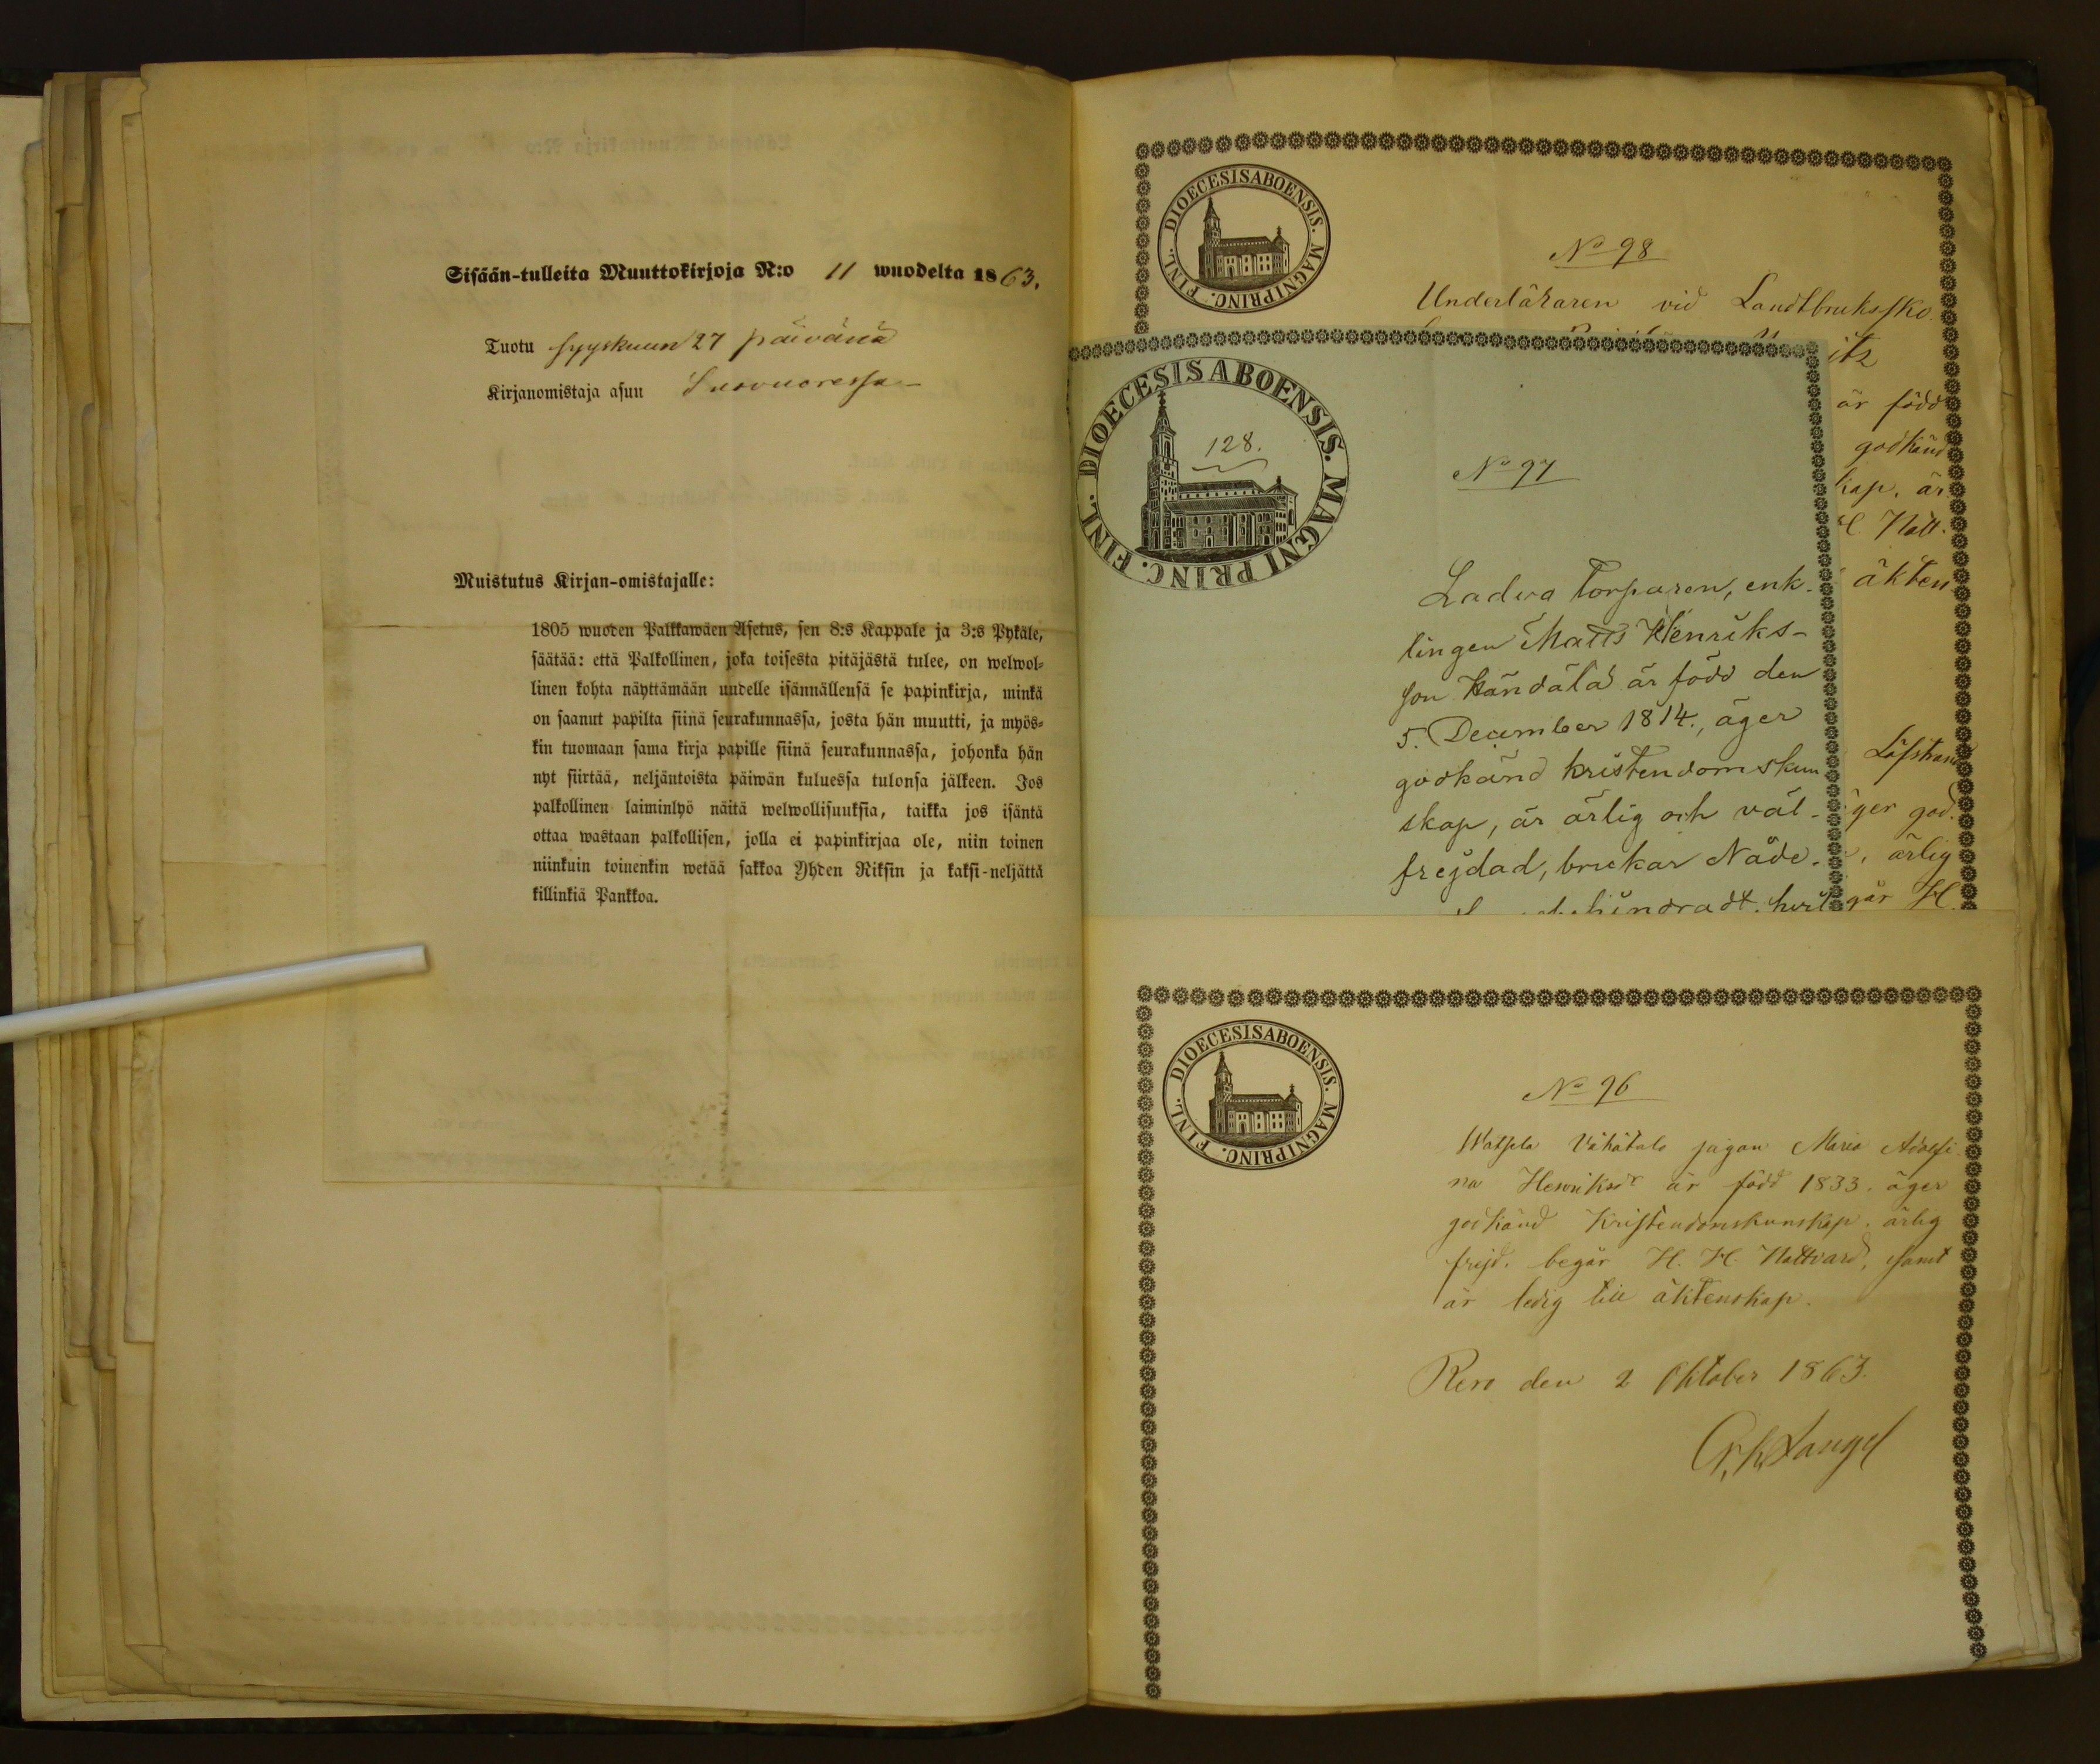 Sisään-tulleita Muuttokirjoja N:o 11 wuodelta 1863.
Tuotu syyskuun 27 päivänä
Kirjanomistaja asuu Suovuoressa
Muistutus Kirjan-omistajalle:
1805 wuoden Palkkawäen Asetus, sen 8:s Kappale ja 3:s Pykäle,
säätää: että Palkollinen, joka toisesta pitäjästä tulee, on welwol-
linen kohta näyttämään uudelle isännällensä se papinkirja, minkä
on saanut papilta siinä seurakunnassa, josta hän muutti, ja myös-
kin tuomaan sama kirja papille siinä seurakunnassa, johonka hän
nyt siirtää, neljäntoista päiwän kuluessa tulonsa jälkeen. Jos
palkollinen laiminlyö näitä welwollisuuksia, taikka jos isäntä
ottaa wastaan palkollisen, jolla ei papinkirjaa ole, niin toinen
niinkuin toinenkin wetää sakkoa Yhden Riksin ja kaksi-neljättä
killinkiä Pankkoa.
DIOECESIS ABOENSIS. MAGNI PRINC. FINL.
No 98
Underläraren vid Landtbrukssko
itz
är född
godkänd
kap, är
Natt.
äkten
ger god.
ärlig
går H.
DIOECESIS ABOENSIS. MAGNI PRINC. FINL.
128.
No 97
Ladva Torparen, enk-
lingen Matts Henriks-
son Händälä är född den
5. December 1814., äger
godkänd kristendomskun
skap, är ärlig och väl-
frejdad, brukar Nåde-
hindradt. hvil
DIOECESIS ABOENSIS. MAGNI PRINC. FINL.
No 96
Watsela Vähätalo pigan Maria Adolfi
na Henriksdr är född 1833. äger
godkänd Kristendomskunskap. ärlig
frejd. begår H. H. Nattvard, samt
är ledig till äktenskap.
den 2 Oktober 1863.